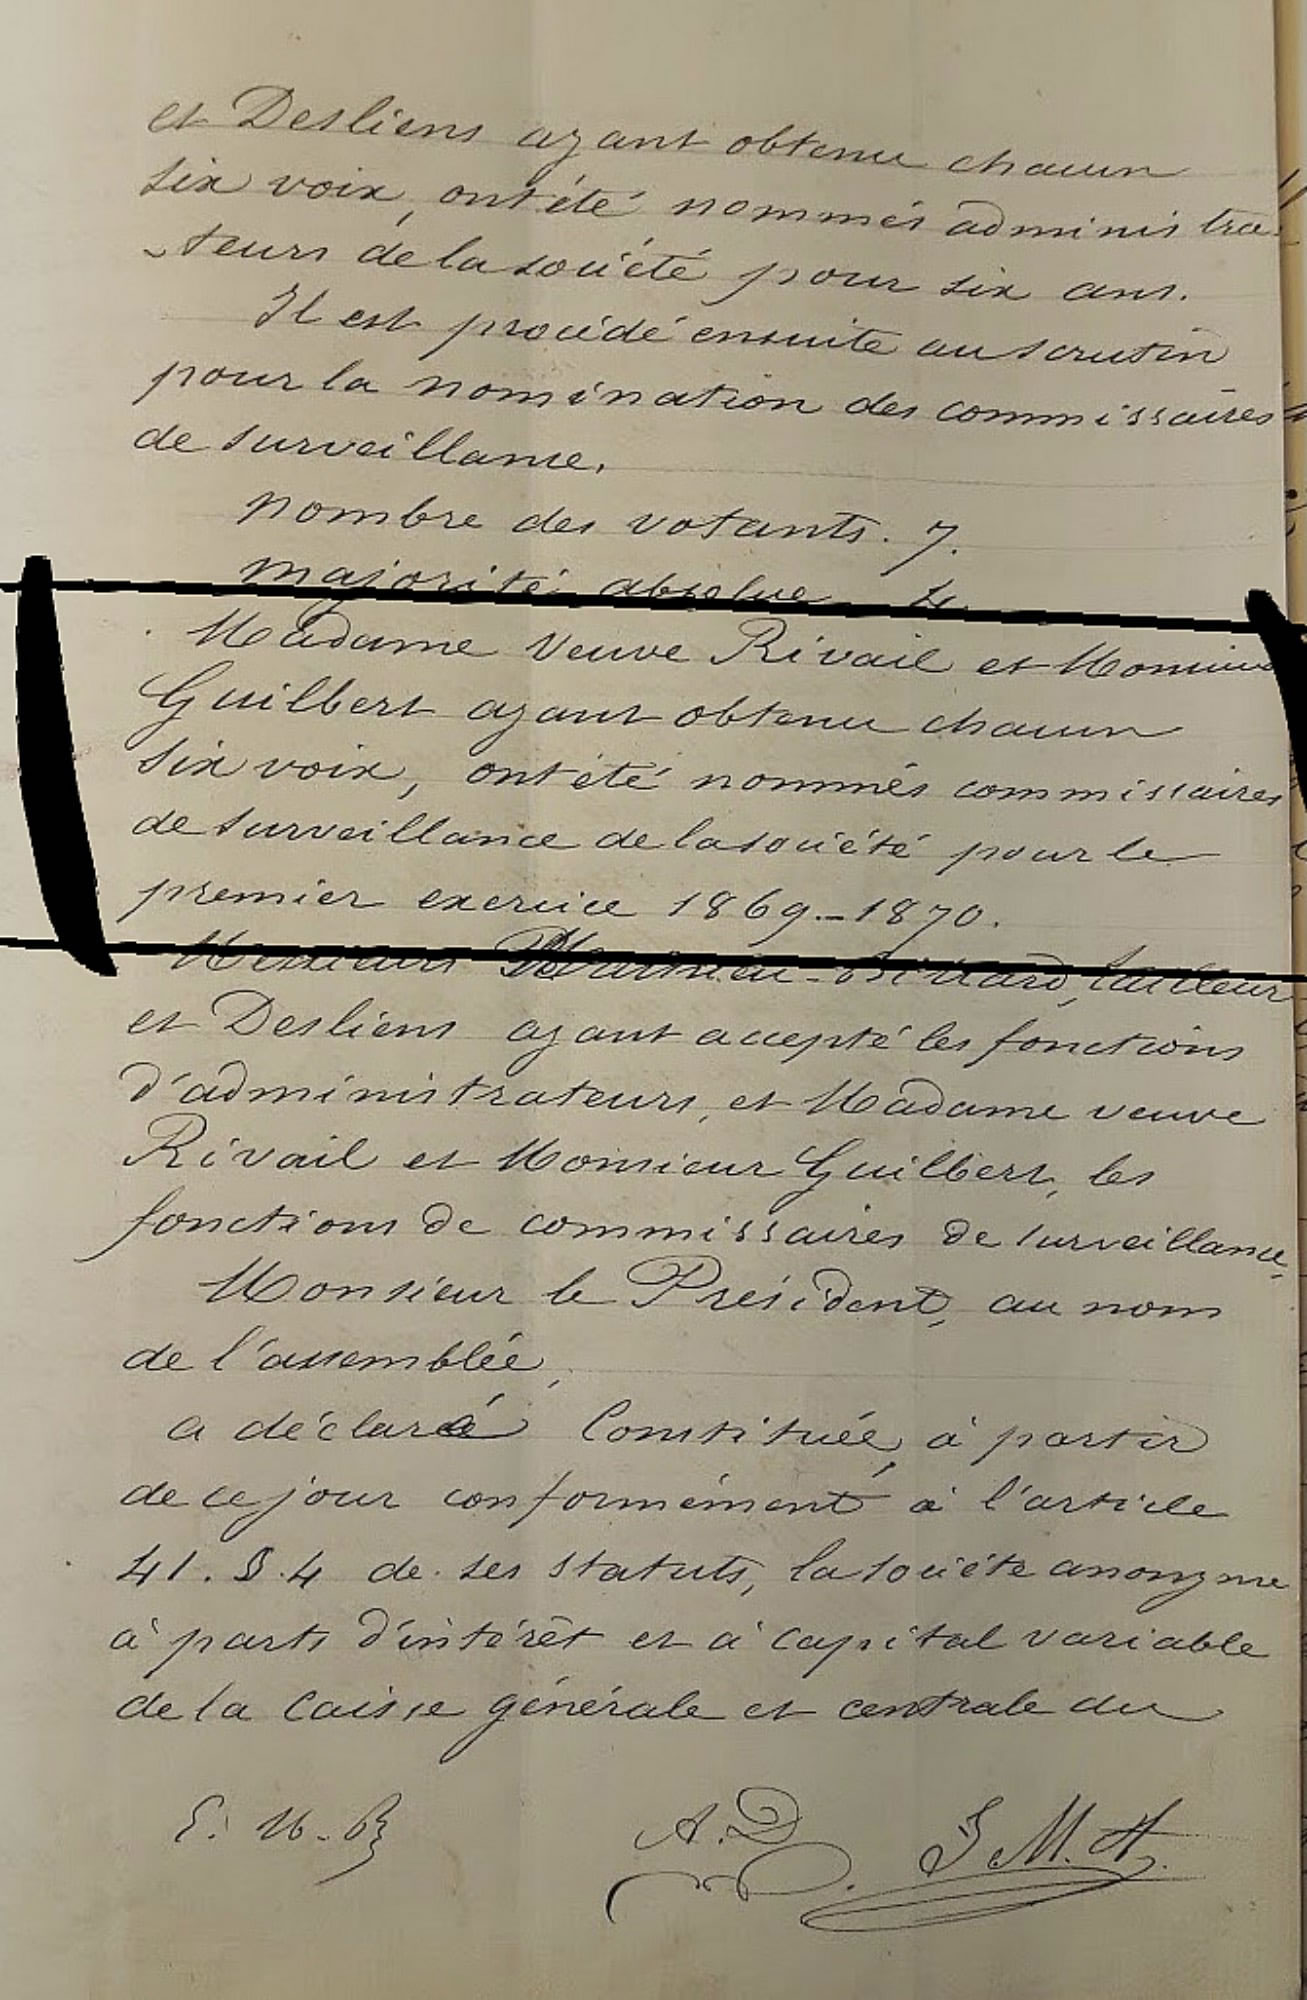 et Desliens ayant obtenu chacun
six voix, ont été nommés administra-
-teurs de la société pour six ans.
Il est procédé ensuite au scrutin
pour la nomination des commissaires
de surveillance.
nombre des votants. 7.
majorité absolue 4.
Madame Veuve Rivail et Monsieur
Guilbert ayant obtenu chacun
six voix, ont été nommés commissaires
de surveillance de la société pour le
premier exercice 1869-1870.
Messieurs Bittard, tailleur
et Desliens ayant accepté les fonctions
d'administrateurs, et Madame veuve
Rivail et Monsieur Guilbert, les
fonctions de commissaires de surveillance,
Monsieur le Président, au nom
de l'assemblée,
a déclaré Constituée, à partir
de ce jour conformément à l'article
41. § 4 de ses statuts, la société anonyme
à parts d'intérêt et à capital variable
de la Caisse générale et centrale du
E. M. B A. D J. M. H.